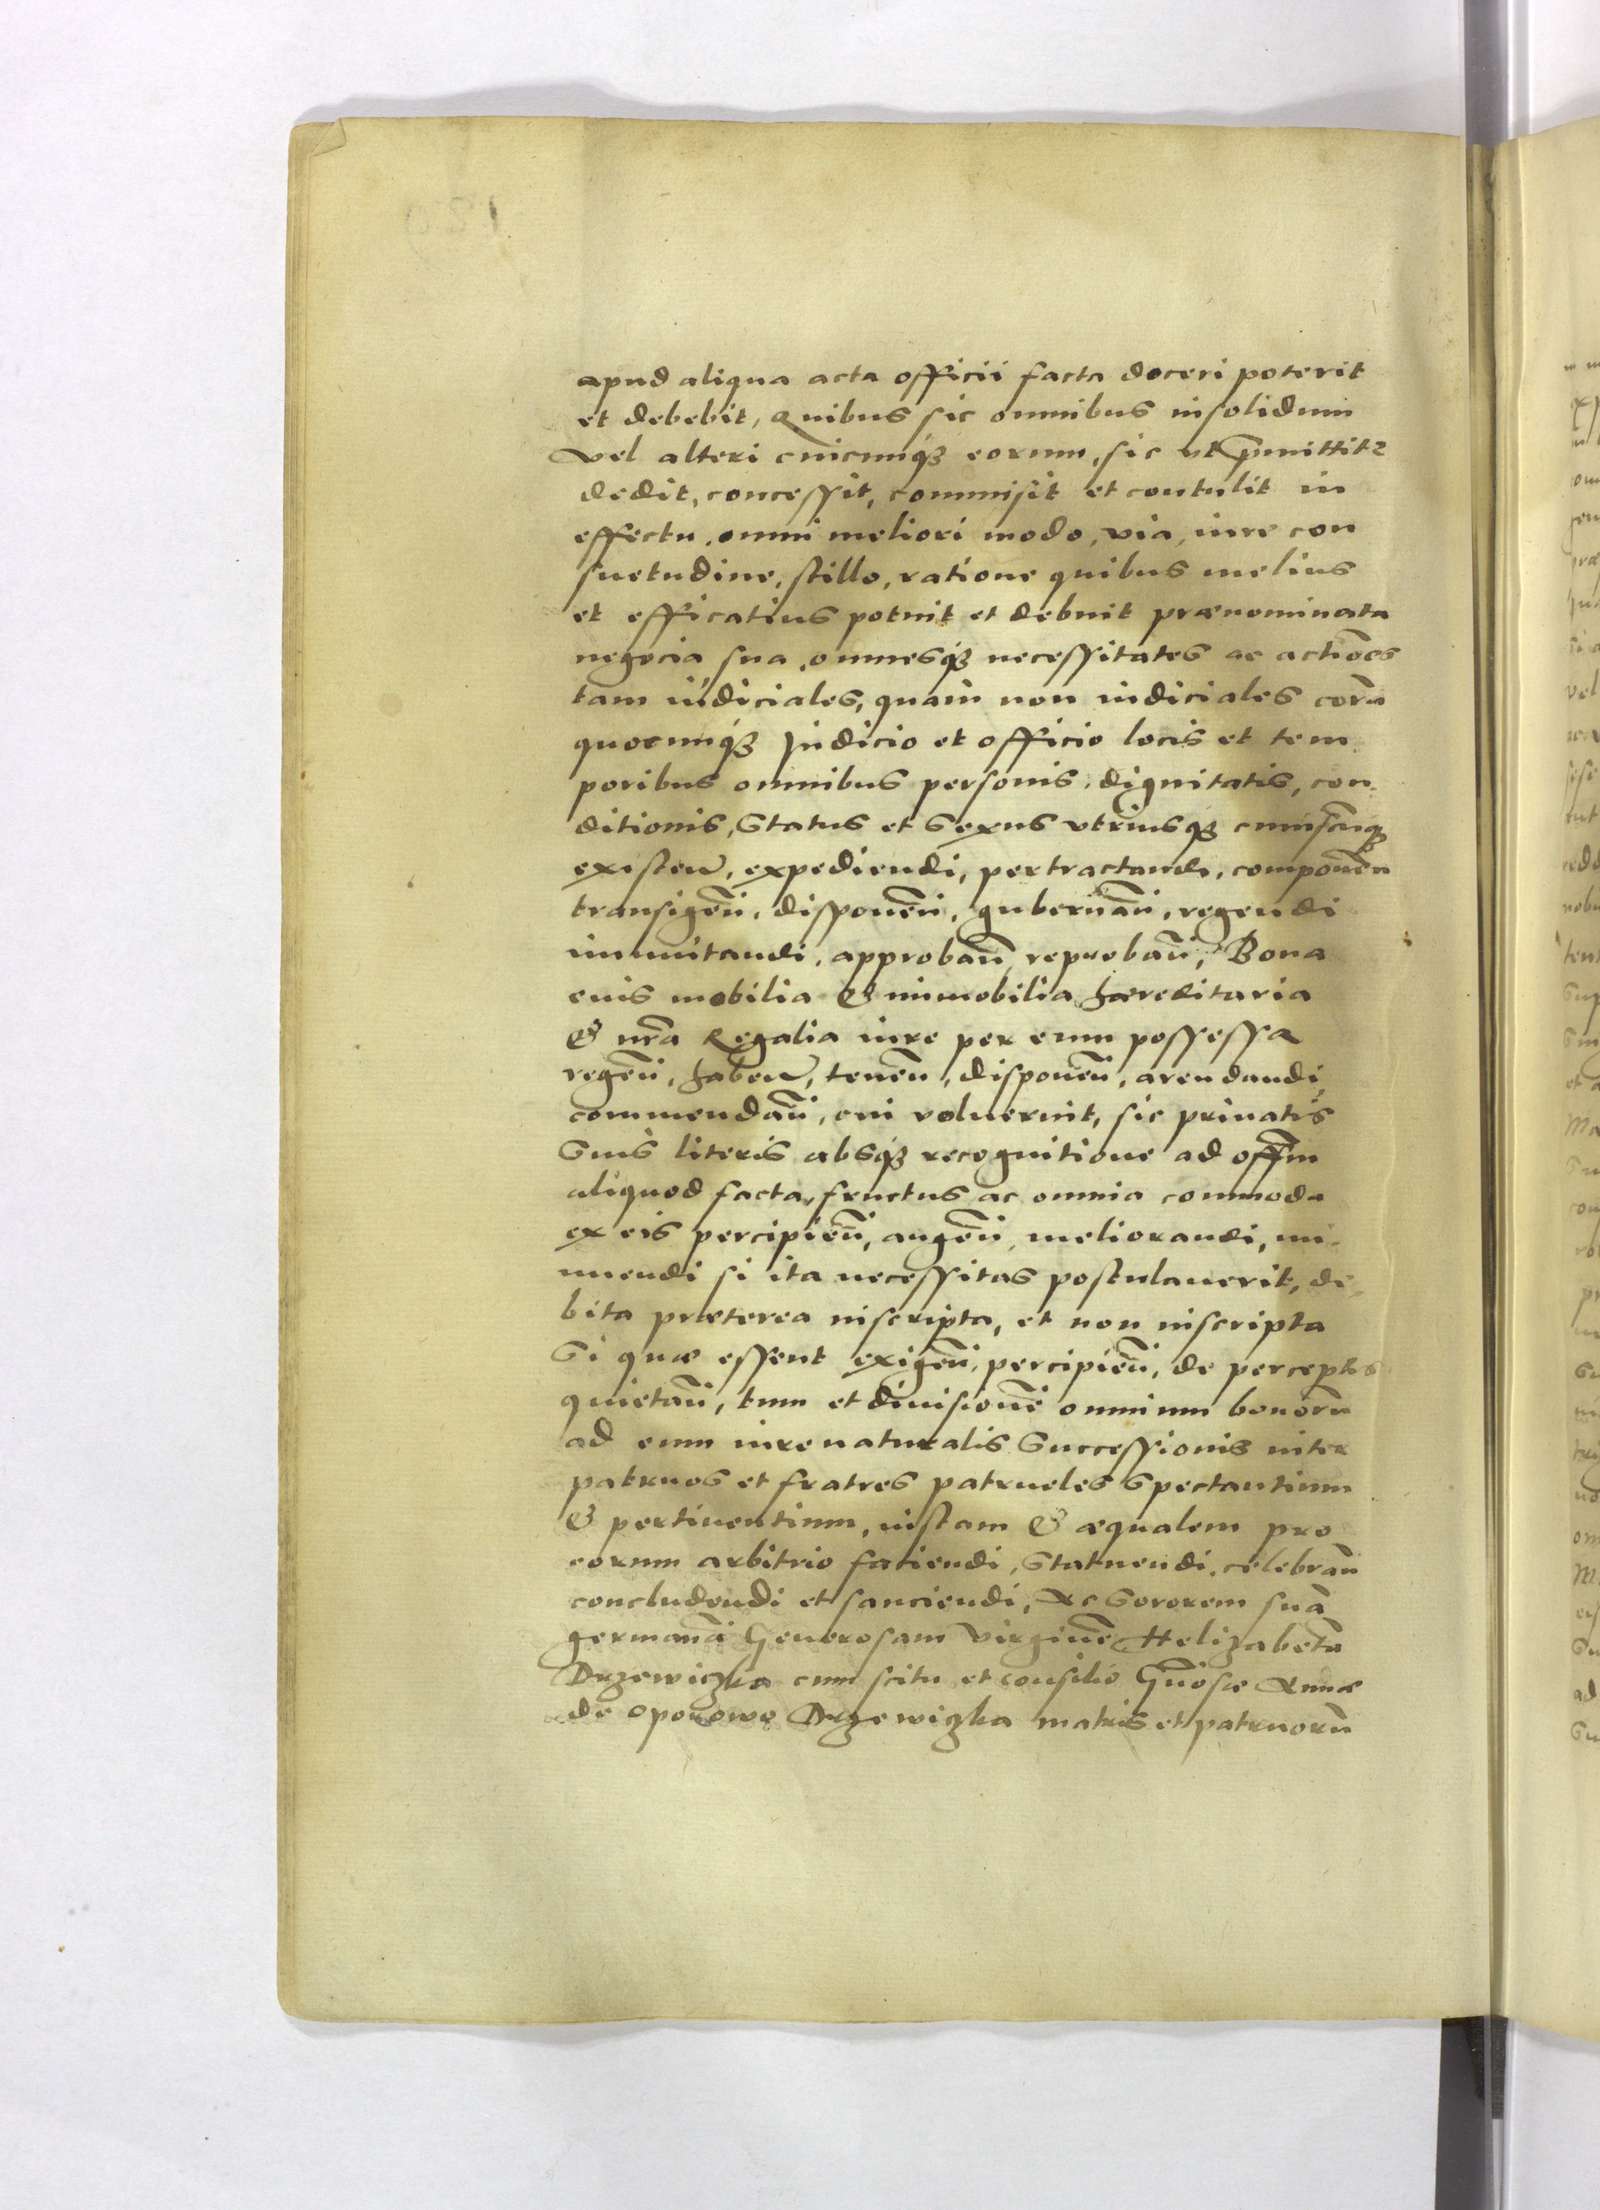 apud aliqua acta officii facta doceri poterit
et debebit, Quibus sic omnibus insolidum
vel alteri cuicumq́ꝫ eorum, sic ut p̄mittitꝛ
dedit, concessit, commisit et contulit in
effectu, omni meliori modo, via, iure con
suetudine, stillo, ratione quibus melius
et efficatius potuit et debuit prænominata
negocia sua, omnesq́ꝫ necessitates ac actiões
tam iudiciales, quam non iudiciales corã
quocumq́ꝫ Judicio et officio locis et tem
poribus omnibus personis, dignitatis, con
ditionis, Status et Sexus vtriusqꝫ cuiuscũqꝫ
existeñ, expediendi, pertractandi, componẽn
transigẽn, disponẽn, gubernãn, regendi
immutandi, approbãn, reprobãn, Bona
euis mobilia & immobilia hæreditaria
& nr̃a Regalia iure per eum possessa
regẽn, habeñ, tenẽn, disponẽn, arendandi,
commendãn, cui voluerint, sic priuatis
Suis literis absq́ꝫ recognitione ad offm̃
aliquod facta, fructus ac omnia commoda
ex eis percipiẽn, augẽn, meliorandi, mi-
nuendi si ita necessitas postulauerit, de-
bita præterea inscripta, et non inscripta
Si quæ essent exigẽn, percipiẽn, de perceptis
quietãn, tum et diuisionẽ omnium bonorũ
ad eum iure naturalis Successionis inter
patruos et fratres patrueles Spectantium
& pertinentium, iustam & æqualem pro
eorum arbitrio faciendi, Statuendi, celebrãn
concludendi et sanciendi, Ac Sororem suã
germanã Generosam Virginẽ Helizabetã
Drzewiczka cum scitu et consilio Gñosæ Annæ
de Oporowo Drzewiczka matris et patruorũ